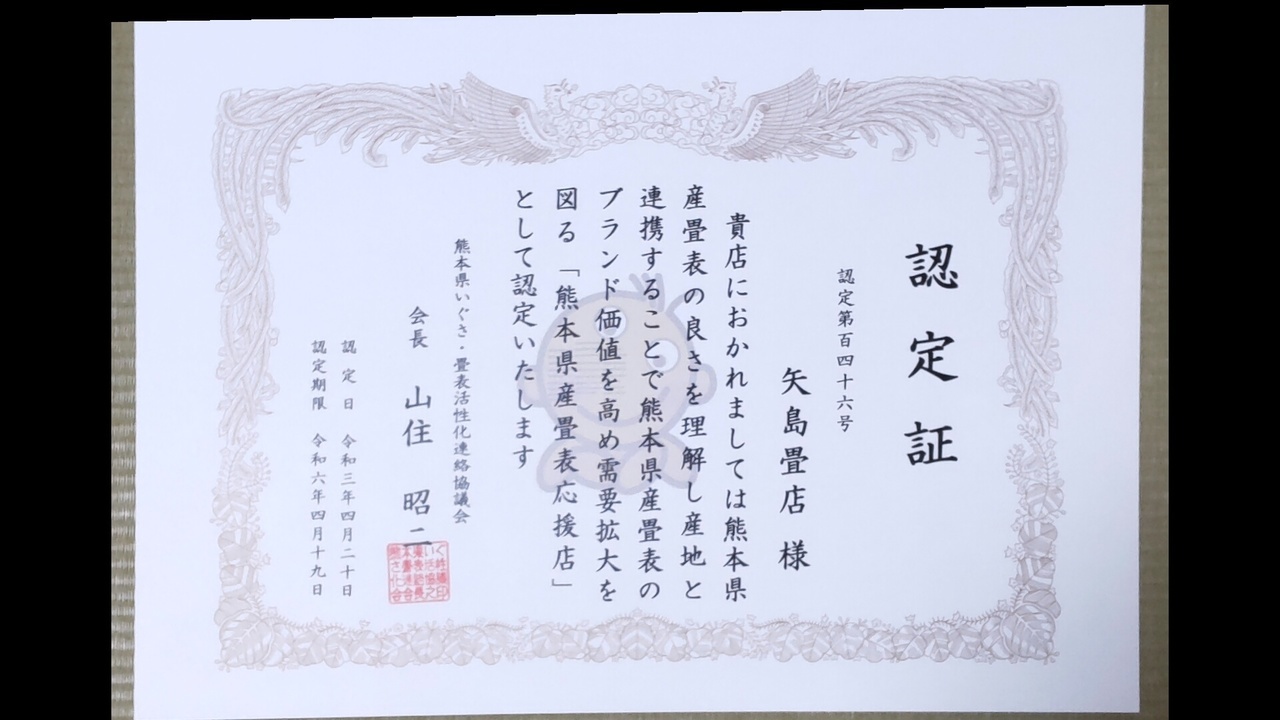 認定証
認定第百四十六号
矢島畳店 様
貴店におかれましては熊本県
産畳表の良さを理解し産地と
連携することで熊本県産畳表の
ブランド価値を高め需要拡大を
図る「熊本県産畳表応援店」
として認定いたします
熊本県いぐさ・畳表活性化連絡協議会
会長 山住 昭二
認定日 令和三年四月二十日
認定期限 令和六年四月十九日